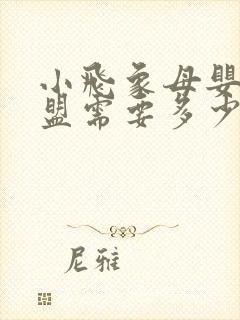 小飛象母嬰
盟需要多少
尼雅